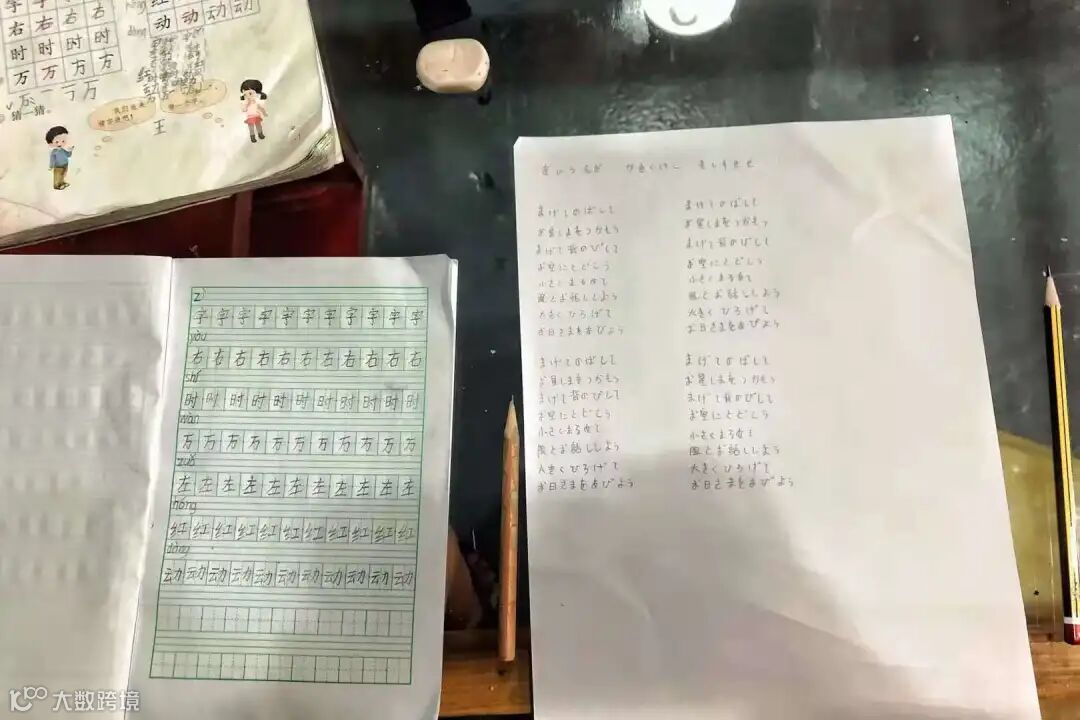 字 右 右 右
右
时 时 时 时
万 一 万 方
万 一 丁 万
猜一猜。
红
动 动 动 动
王
zì
字 字 字 字 字 字 字 字 字 字 字
yòu
右 右 右 右 右 右 右 右 右 右 右
shí
时 时 时 时 时 时 时 时 时 时 时
wàn
万 万 万 万 万 万 万 万 万 万 万
zuǒ
左 左 左 左 左 左 左 左 左 左 左
hóng
红 红 红 红 红 红 红 红 红 红 红
dòng
动 动 动 动 动 动 动 动 动 动 动
かきくけこ さしすせせ
まげてのばして
お星さまをつかもう
まげて背のびして
お空にとどこう
小さくまるめて
風とお話ししよう
大きくひろげて
お日さまをあびよう
まげてのばして
お星さまをつかもう
まげて背のびして
お空にとどこう
小さくまるめて
風とお話ししよう
大きくひろげて
お日さまをあびよう
まげてのばして
お星さまをつかもう
まげて背のびして
お空にとどこう
小さくまるめて
風とお話ししよう
大きくひろげて
お日さまをあびよう
まげてのばして
お星さまをつかもう
まげて背のびして
お空にとどこう
小さくまるめて
風とお話ししよう
大きくひろげて
お日さまをあびよう
大数跨境